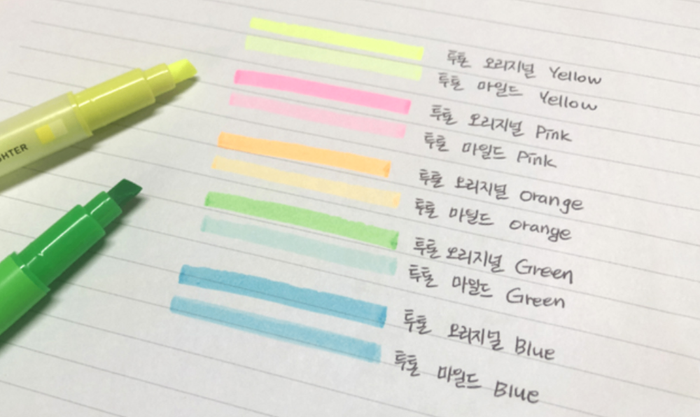 투톤 오리지널 Yellow
투톤 마일드 Yellow
투톤 오리지널 Pink
투톤 마일드 Pink
투톤 오리지널 Orange
투톤 마일드 Orange
투톤 오리지널 Green
투톤 마일드 Green
투톤 오리지널 Blue
투톤 마일드 Blue